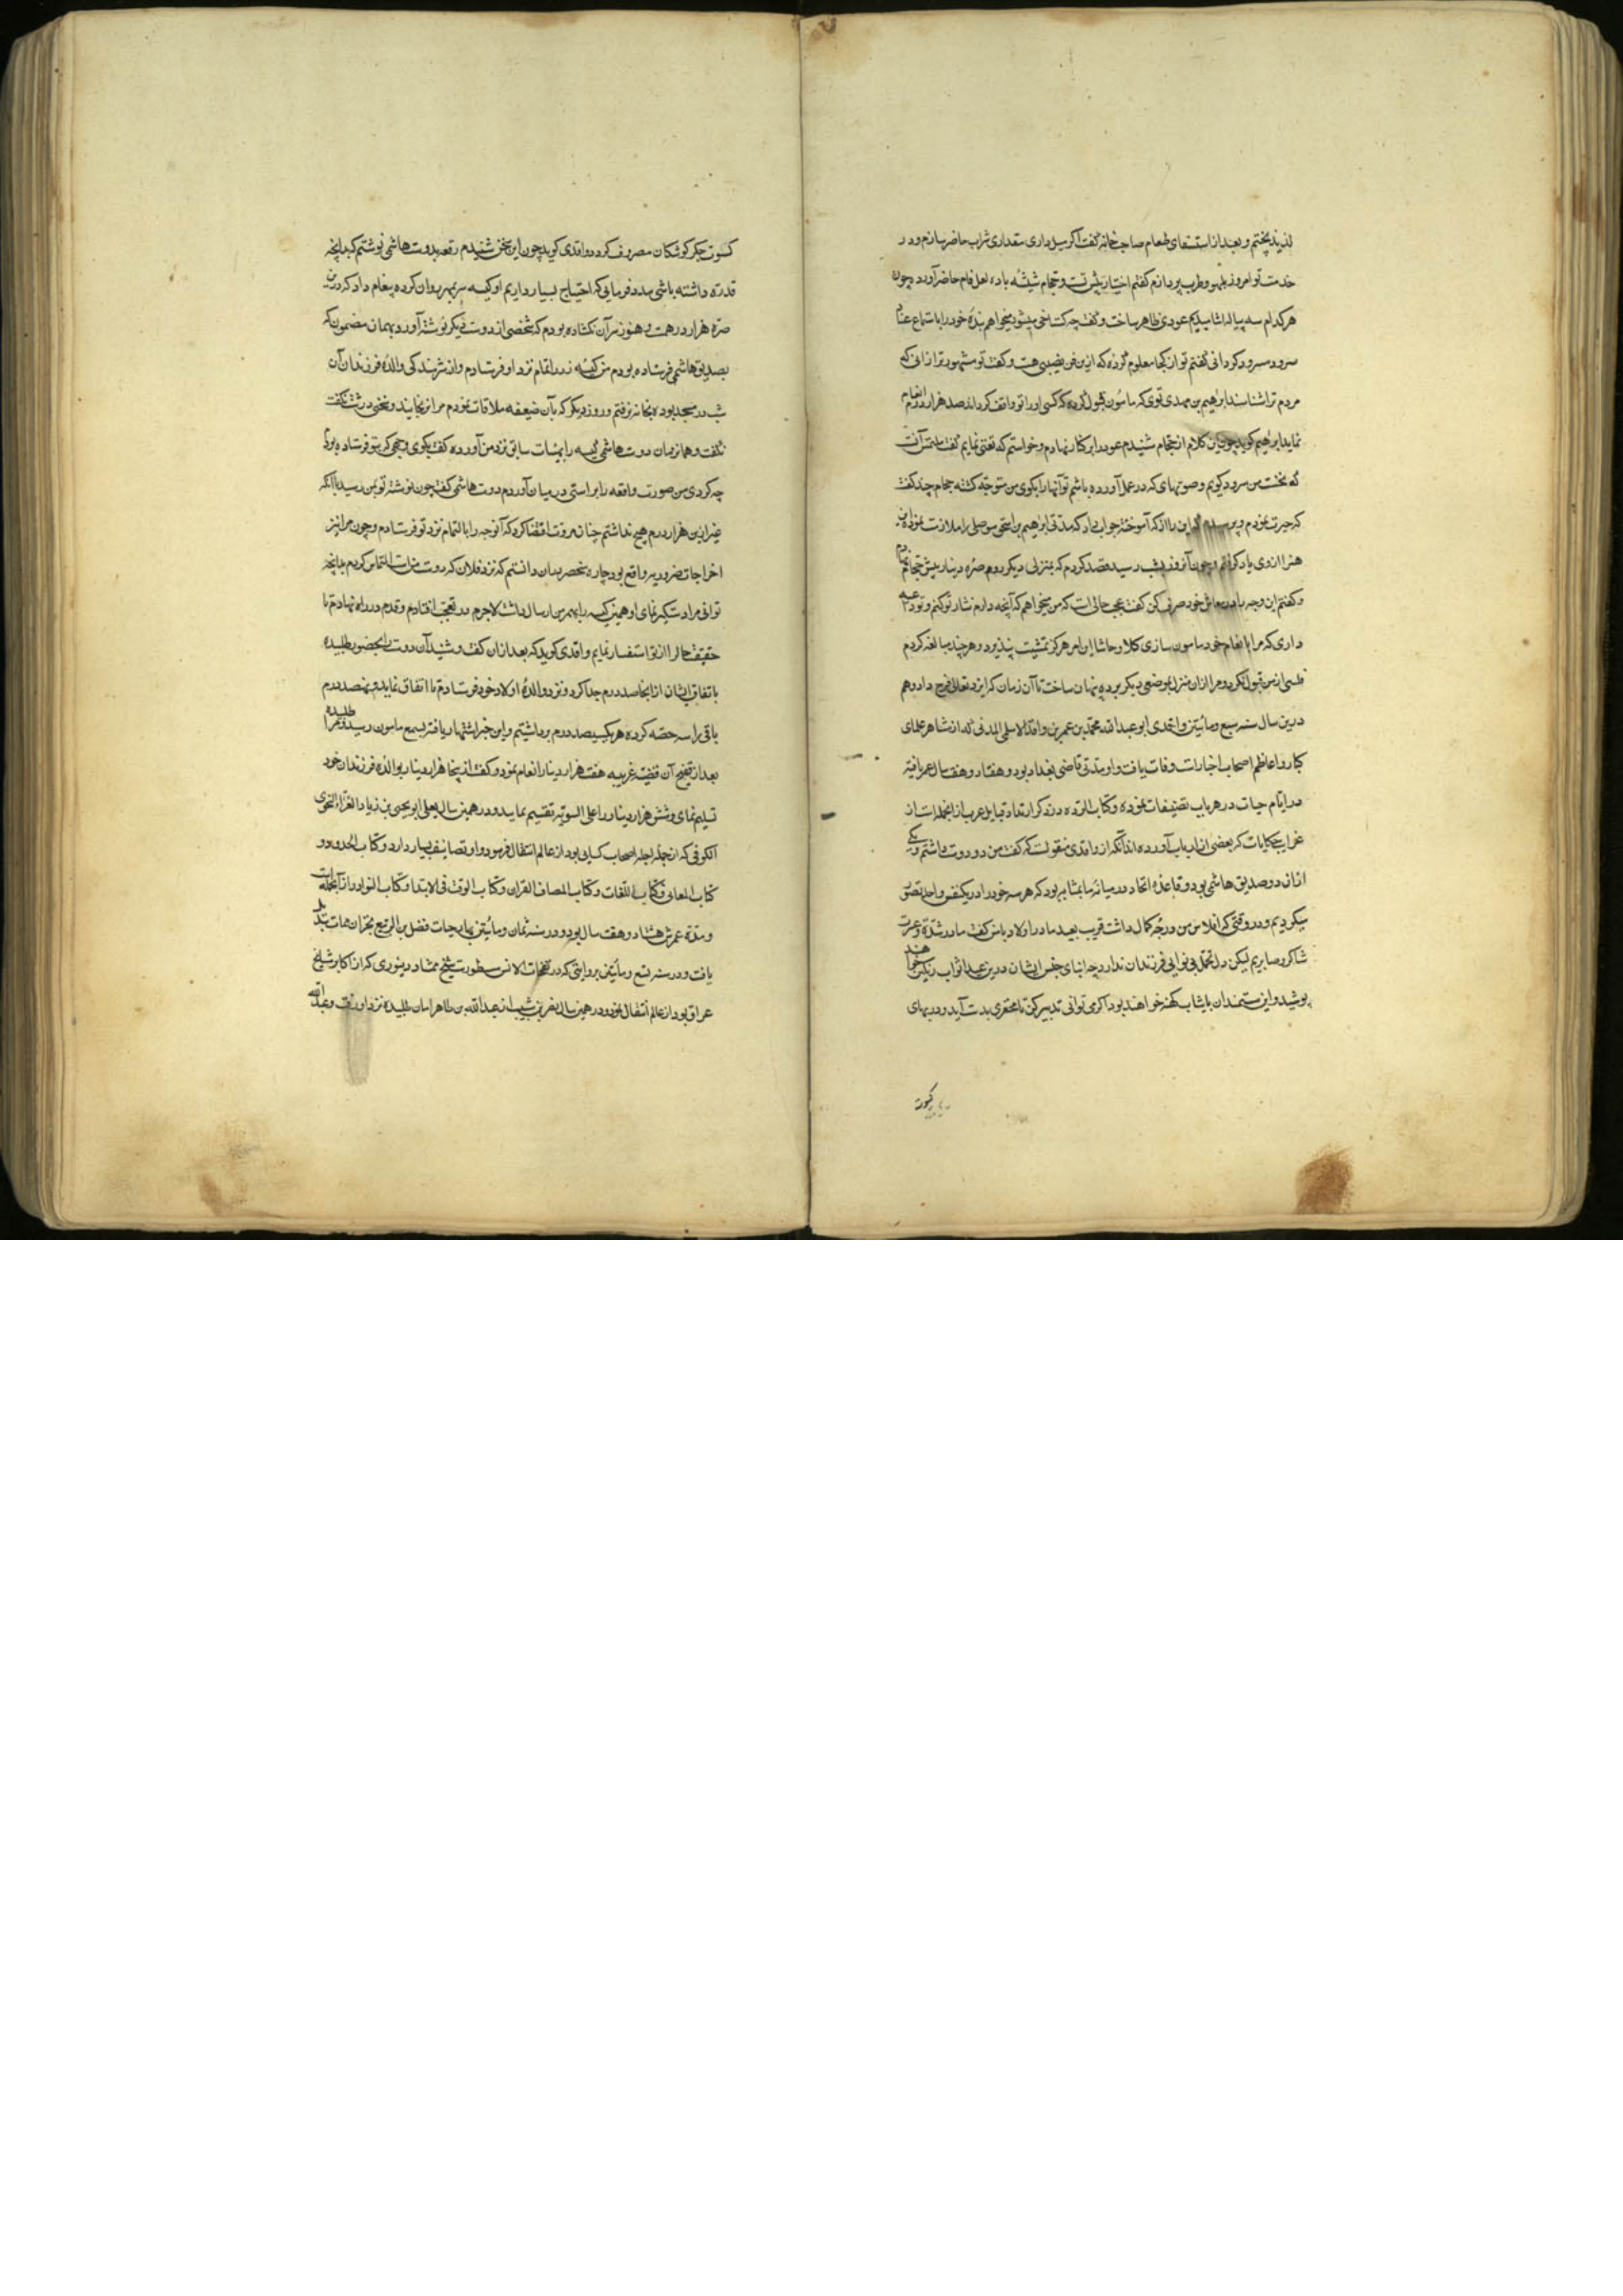 لذیذ پختم و بعد از استیفای طعام صاحب خانه گفت اگر میل داری مقداری شراب حاضر سازم و در
خدمت تو امروز بلهو و طرب پردازم گفتم اختیار پیش تست و حجام شیشه باده لعل فام حاضر آورد و چون
هر کدام سه پیاله آشامیدیم عودی ظاهر ساخت و گفت چه گستاخی میشود میخواهم بنده خود را باستماع
سرود مسرور گردانی گفتم تو از کجا معلوم کرده که ازین فن نصیبی هست و گفت تو مشهورتر از آنی که
مردم ترا نشناسند ابراهیم بن مهدی توی که مامون قبول کرده که کسی او را تو واقف گرداند صد هزار درم انعام
نماید ابراهیم گوید چون این کلام از حجام شنیدم عود را بر کنار نهادم و خواستم که تغنی نمایم گفت ملتمس آنست
که نخست من سرود گویم و صوتهای که در عمل آورده باشم تو آنها را بگوی من متوجه گشته حجام چند گفت
که حیرت نمودم و پرسیدم که این را از که آموخته جواب داد که مدتی ابراهیم بن اسحق موصلی را ملازمت نموده این
هنر از وی یاد گرفتم و چون آنروز بشب رسید قصد کردم که بمنزلی دیگر روم صره دینار پیش حجام نهادم
و گفتم این وجه را در معاش خود صرف کن گفت عجب حالی است که من میخواهم که آنچه دارم نثار تو کنم و تو
داری که مرا بانعام خود مامون سازی کلا و حاشا این امر هرگز تمشیت پذیرد و هر چند مبالغه کردم
فلسی از من قبول نکرد و مرا از آن منزل بموضعی دیگر برده پنهان ساخت تا آن زمان که ایزد تعالی فرج داد و هم
درین سال سنه سبع و مائتین واقدی ابو عبد الله محمد بن عمر بن واقد الاسلمی المدنی که از مشاهر علمای
کبار و اعاظم اصحاب اخبار است وفات یافت و او مدتی قاضی بغداد بود و هفتاد و هفت سال عمر یافته
در ایام حیات در هر باب تصنیفات نموده و کتاب الرده در ذکر ارتداد قبایل عرب از آنجمله است از
غرایب حکایات که بعضی از ارباب آورده اند آنکه از واقدی منقولست که گفت من دو دوست داشتم و یکی
از ان دو صدیق هاشمی بود و قاعده اتحاد در میانه ما بمثابه بود که هر سه خود را در یکنفس واحد تصور
میکردیم و در وقتی که افلاس من درجه کمال داشت قریب بعید مادر اولاد با من گفت ما در شدت و عسرت
شاکر و صابریم لیکن دل تحمل بی نوایی فرزندان ندارد چه ابنای جنس ایشان درین عید اثواب رنگین خواهند
پوشید و این مستمندان با ثیاب کهنه خواهند بود اگر می توانی تدبیر کن تا محقری بدست آید و در بهای
کسوت
کسوت جگرگوشگان مصروف گردد واقدی گوید چون این سخن شنیدم رقعه بدوست هاشمی نوشتم که بدانچه
قدرت داشته باشی مدد فرمایی که احتیاج بسیار داریم او کیسه سر بمهر روان کرده پیغام داد که درین
صره هزار درهمست و هنوز سر آن نگشاده بودم که شخصی از دوست دیگر نوشته آورد بهمان مضمون که
بصدیق هاشمی فرستاده بودم من کیسه زر را تمام نزد او فرستادم و از شرمندگی والده فرزندان آن
شب در مسجد بوده بخانه نرفتم و روز دیگر که با آن ضعیفه ملاقات نمودم مرا نرنجانید و سخنی درشت نگفت
نگفت و همانزمان دوست هاشمی کیسه را بهیئات سابق نزد من آورده گفت بگوی وجهی که بتو فرستاده بودم
چه کردی من صورت واقعه را براستی در بیان آوردم دوست هاشمی گفت چون نوشته تو بمن رسید با آنکه
غیر ازین هزار درم هیچ نداشتم چنان مروت اقتضا کرد که آنوجه را بالتمام نزد تو فرستادم و چون مرا نیز
اخراجات ضروریه واقع بود چاره منحصر بدان دانستم که نزد فلان که دوست ماست التماس کردم بدانچه
توانی مرا دستگیر نمای او همین کیسه را بمهر من ارسال داشت لاجرم در تعجب افتادم و قدم در راه نهادم تا
حقیقت حال را از تو استفسار نمایم واقدی گوید که بعد از ان گفت و شنید آن دوست را بحضور طلبیده
باتفاق ایشان از انجا صد درم جدا کرده نزد والده اولاد خود فرستادم تا انفاق نماید و نهصد درم
باقی را سه حصه کرده هر یک سیصد درم برداشتیم و این خبر اشتهار یافته بسمع مامون رسید و مرا طلبیده
بعد از تنقیح آن قضیه غریبه هفت هزار دینار انعام نمود و گفت از ینجا هزار دینار بوالده فرزندان خود
تسلیم نمای و شش هزار دینار را علی السویه تقسیم نمایید و در همین سال یعلی ابو یحیی بن زیاد الفراء النحوی
الکوفی که از جمله اجله اصحاب کسایی بود از عالم انتقال فرمود و او تصانیف بسیار دارد و کتاب الحدود و
کتاب المعانی و کتاب اللغات و کتاب المصاف القران و کتاب الوقف فی الابتدا و کتاب النوادر از آنجمله است
و مدت عمرش هشتاد و هفت سال بود و در سنه ثمان و مائتین فضل بن الربیع
یافت و در سنه تسع و مائتین بروایتی که در نفحات الانس مسطورست شیخ ممشاد دینوری که از اکابر مشایخ
عراق بود از عالم انتقال نمود و در همین سال نصر بن شیب از عبد الله بن طاهر امان طلبیده نزد او رفت و عبد الله